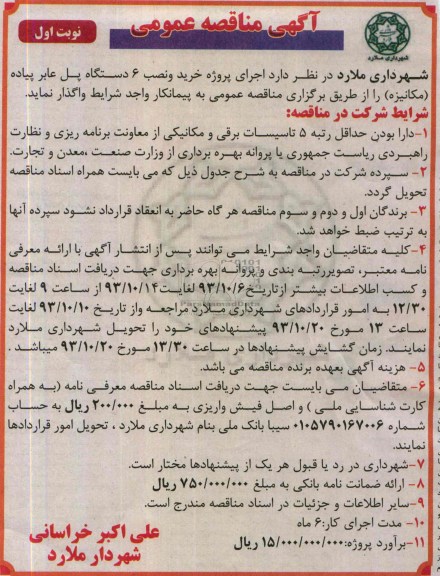 آگهی مناقصه عمومی
نوبت اول
شهرداری ملارد
شهرداری ملارد در نظر دارد اجرای پروژه خرید ونصب ۶ دستگاه پل عابر پیاده
(مکانیزه) را از طریق برگزاری مناقصه عمومی به پیمانکار واجد شرایط واگذار نماید.
شرایط شرکت در مناقصه:
۱-دارا بودن حداقل رتبه ۵ تاسیسات برقی و مکانیکی از معاونت برنامه ریزی و نظارت
راهبردی ریاست جمهوری یا پروانه بهره برداری از وزارت صنعت ،معدن و تجارت.
۲- سپرده شرکت در مناقصه به شرح جدول ذیل که می بایست همراه اسناد مناقصه
تحویل گردد.
۳- برندگان اول و دوم و سوم مناقصه هر گاه حاضر به انعقاد قرارداد نشود سپرده آنها
به ترتیب ضبط خواهد شد.
۴-کلیه متقاضیان واجد شرایط می توانند پس از انتشار آگهی با ارائه معرفی
نامه معتبر، تصویررتبه بندی و پروانه بهره برداری جهت دریافت اسناد مناقصه
و کسب اطلاعات بیشتر ازتاریخ ۹۳/۱۰/۶ لغایت ۹۳/۱۰/۱۴ از ساعت ۹ لغایت
۱۲/۳۰ به امور قراردادهای شهرداری ملارد مراجعه واز تاریخ ۹۳/۱۰/۱۰ لغایت
ساعت ۱۳ مورخ ۹۳/۱۰/۲۰ پیشنهادهای خود را تحویل شهرداری ملارد
نمایند. زمان گشایش پیشنهادها در ساعت ۱۳/۳۰ مورخ ۹۳/۱۰/۲۰ میباشد .
۵- هزینه آگهی بعهده برنده مناقصه می باشد.
۶- متقاضیان می بایست جهت دریافت اسناد مناقصه معرفی نامه (به همراه
کارت شناسایی ملی ) و اصل فیش واریزی به مبلغ ۲۰۰/۰۰۰ ریال به حساب
شماره ۰۱۰۵۷۹۰۱۶۷۰۰۶ سیبا بانک ملی بنام شهرداری ملارد ، تحویل امور قراردادها
نمایند.
۷-شهرداری در رد یا قبول هر یک از پیشنهادها مختار است.
۸- ارائه ضمانت نامه بانکی به مبلغ ۷۵۰/۰۰۰/۰۰۰ ریال
۹-سایر اطلاعات و جزئیات در اسناد مناقصه مندرج است.
۱۰- مدت اجرای کار:۶ ماه
۱۱-برآورد پروژه:۱۵/۰۰۰/۰۰۰/۰۰۰ ریال
علی اکبر خراسانی
شهردار ملارد